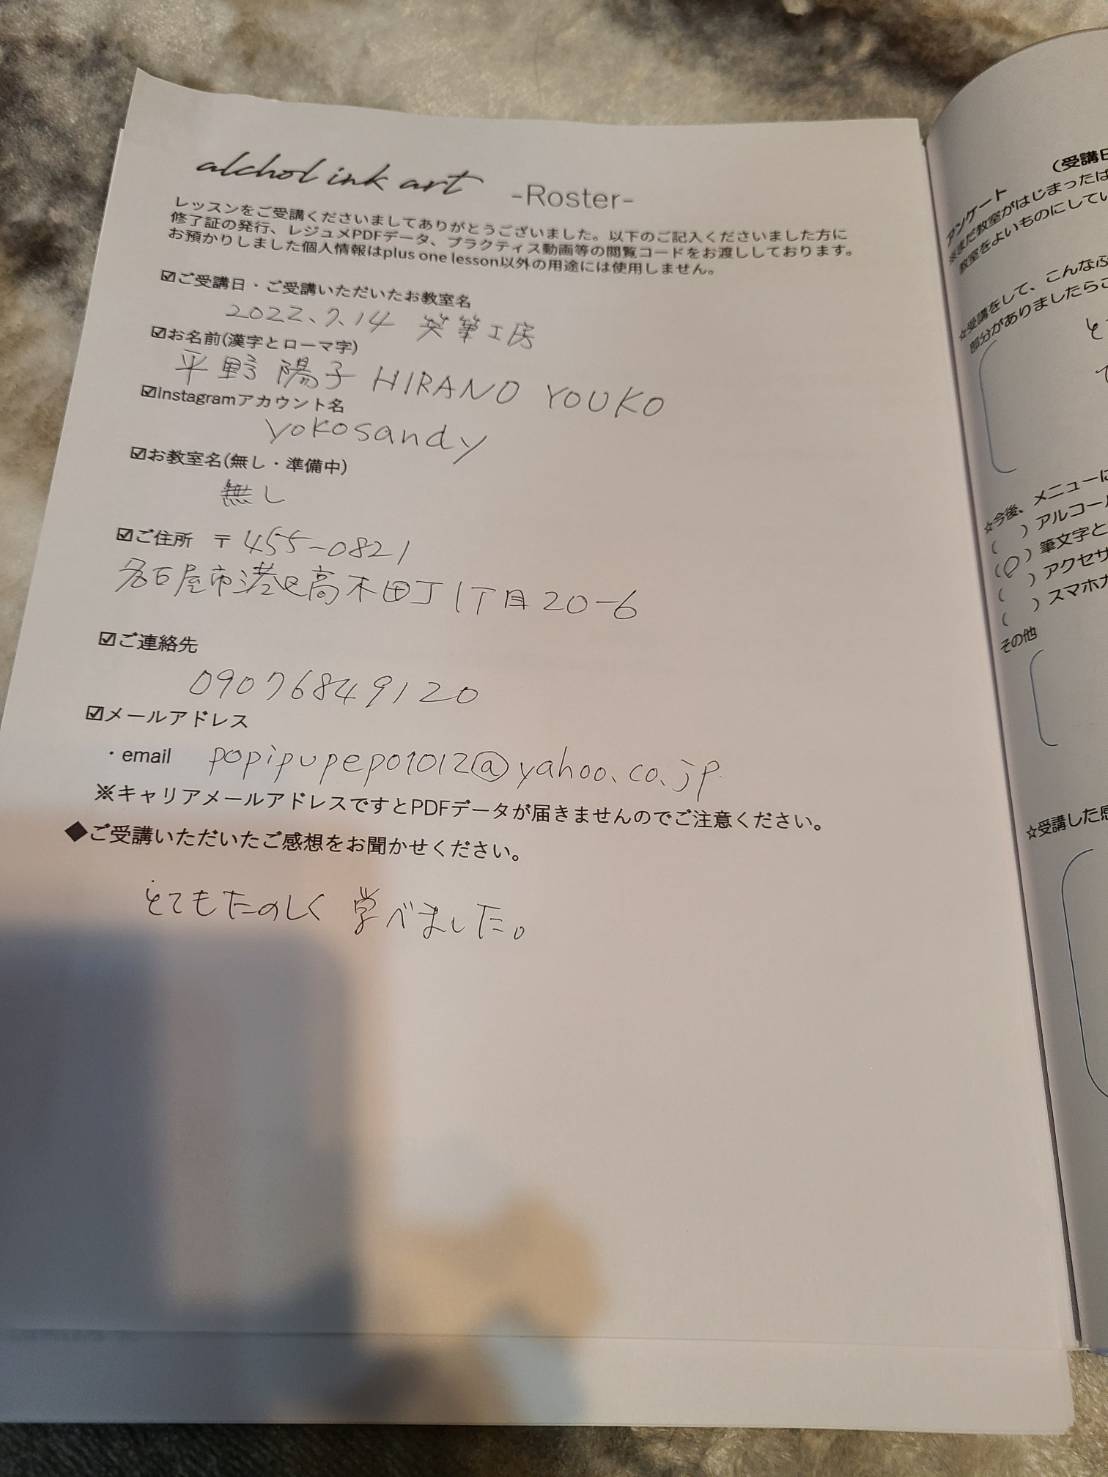 alchol ink art -Roster-
レッスンをご受講くださいましてありがとうございました。以下のご記入くださいました方に
修了証の発行、レジュメPDFデータ、プラクティス動画等の閲覧コードをお渡ししております。
お預かりしました個人情報はplus one lesson以外の用途には使用しません。
☑ご受講日・ご受講いただいたお教室名
2022.7.14 英筆工房
☑お名前(漢字とローマ字)
平野陽子 HIRANO YOUKO
☑instagramアカウント名
yokosandy
☑お教室名(無し・準備中)
無し
☑ご住所 〒455-0821
名古屋市港区高木田丁1丁目20-6
☑ご連絡先
09076849120
☑メールアドレス
・email popipupepo1012@yahoo.co.jp
※キャリアメールアドレスですとPDFデータが届きませんのでご注意ください。
◆ご受講いただいたご感想をお聞かせください。
とてもたのしく学べました。
アンケート (受講日
※まだ教室がはじまったば
教室をよいものにしてい
☆受講をして、こんなふ
部分がありましたらご
と
て
☆今後、メニューに
( ) アルコール
(○) 筆文字と
( ) アクセサ
( ) スマホカ
その他
☆受講した感